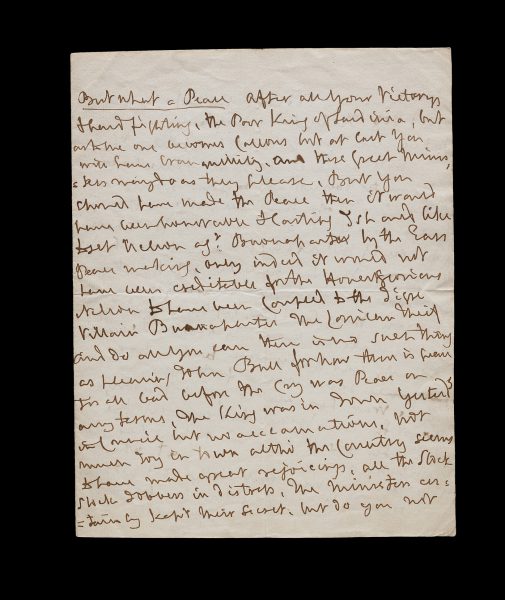 But what a Peace after all your Victorys
& hard fighting, the Poor King of Sardinia, but
one becomes Callous but at last You
will have tranquility, and these Great Minis
=ters may do as they please, But You
should have made the Peace then it would
have been honorable & lasting I should like
to set Nelson agt. Buonaparte by the Ears
Peace making, indeed it would not
have been creditable for the Honest Glorious
Nelson to have been Coupled to the
Villain Buonaparte the Corsican Thief
and do all you can there is no such thing
as pleasing John Bull for now there is peace
tis all bad before the Cry was Peace on
any terms, the King was in Town Yesterd
Council but no acclamations, not
much Joy in town altho the Country seems
to have made great rejoicings, all the Stock
Stock Jobbers in distress, the Ministers cer=
=tainly kept their Secret. but do you not